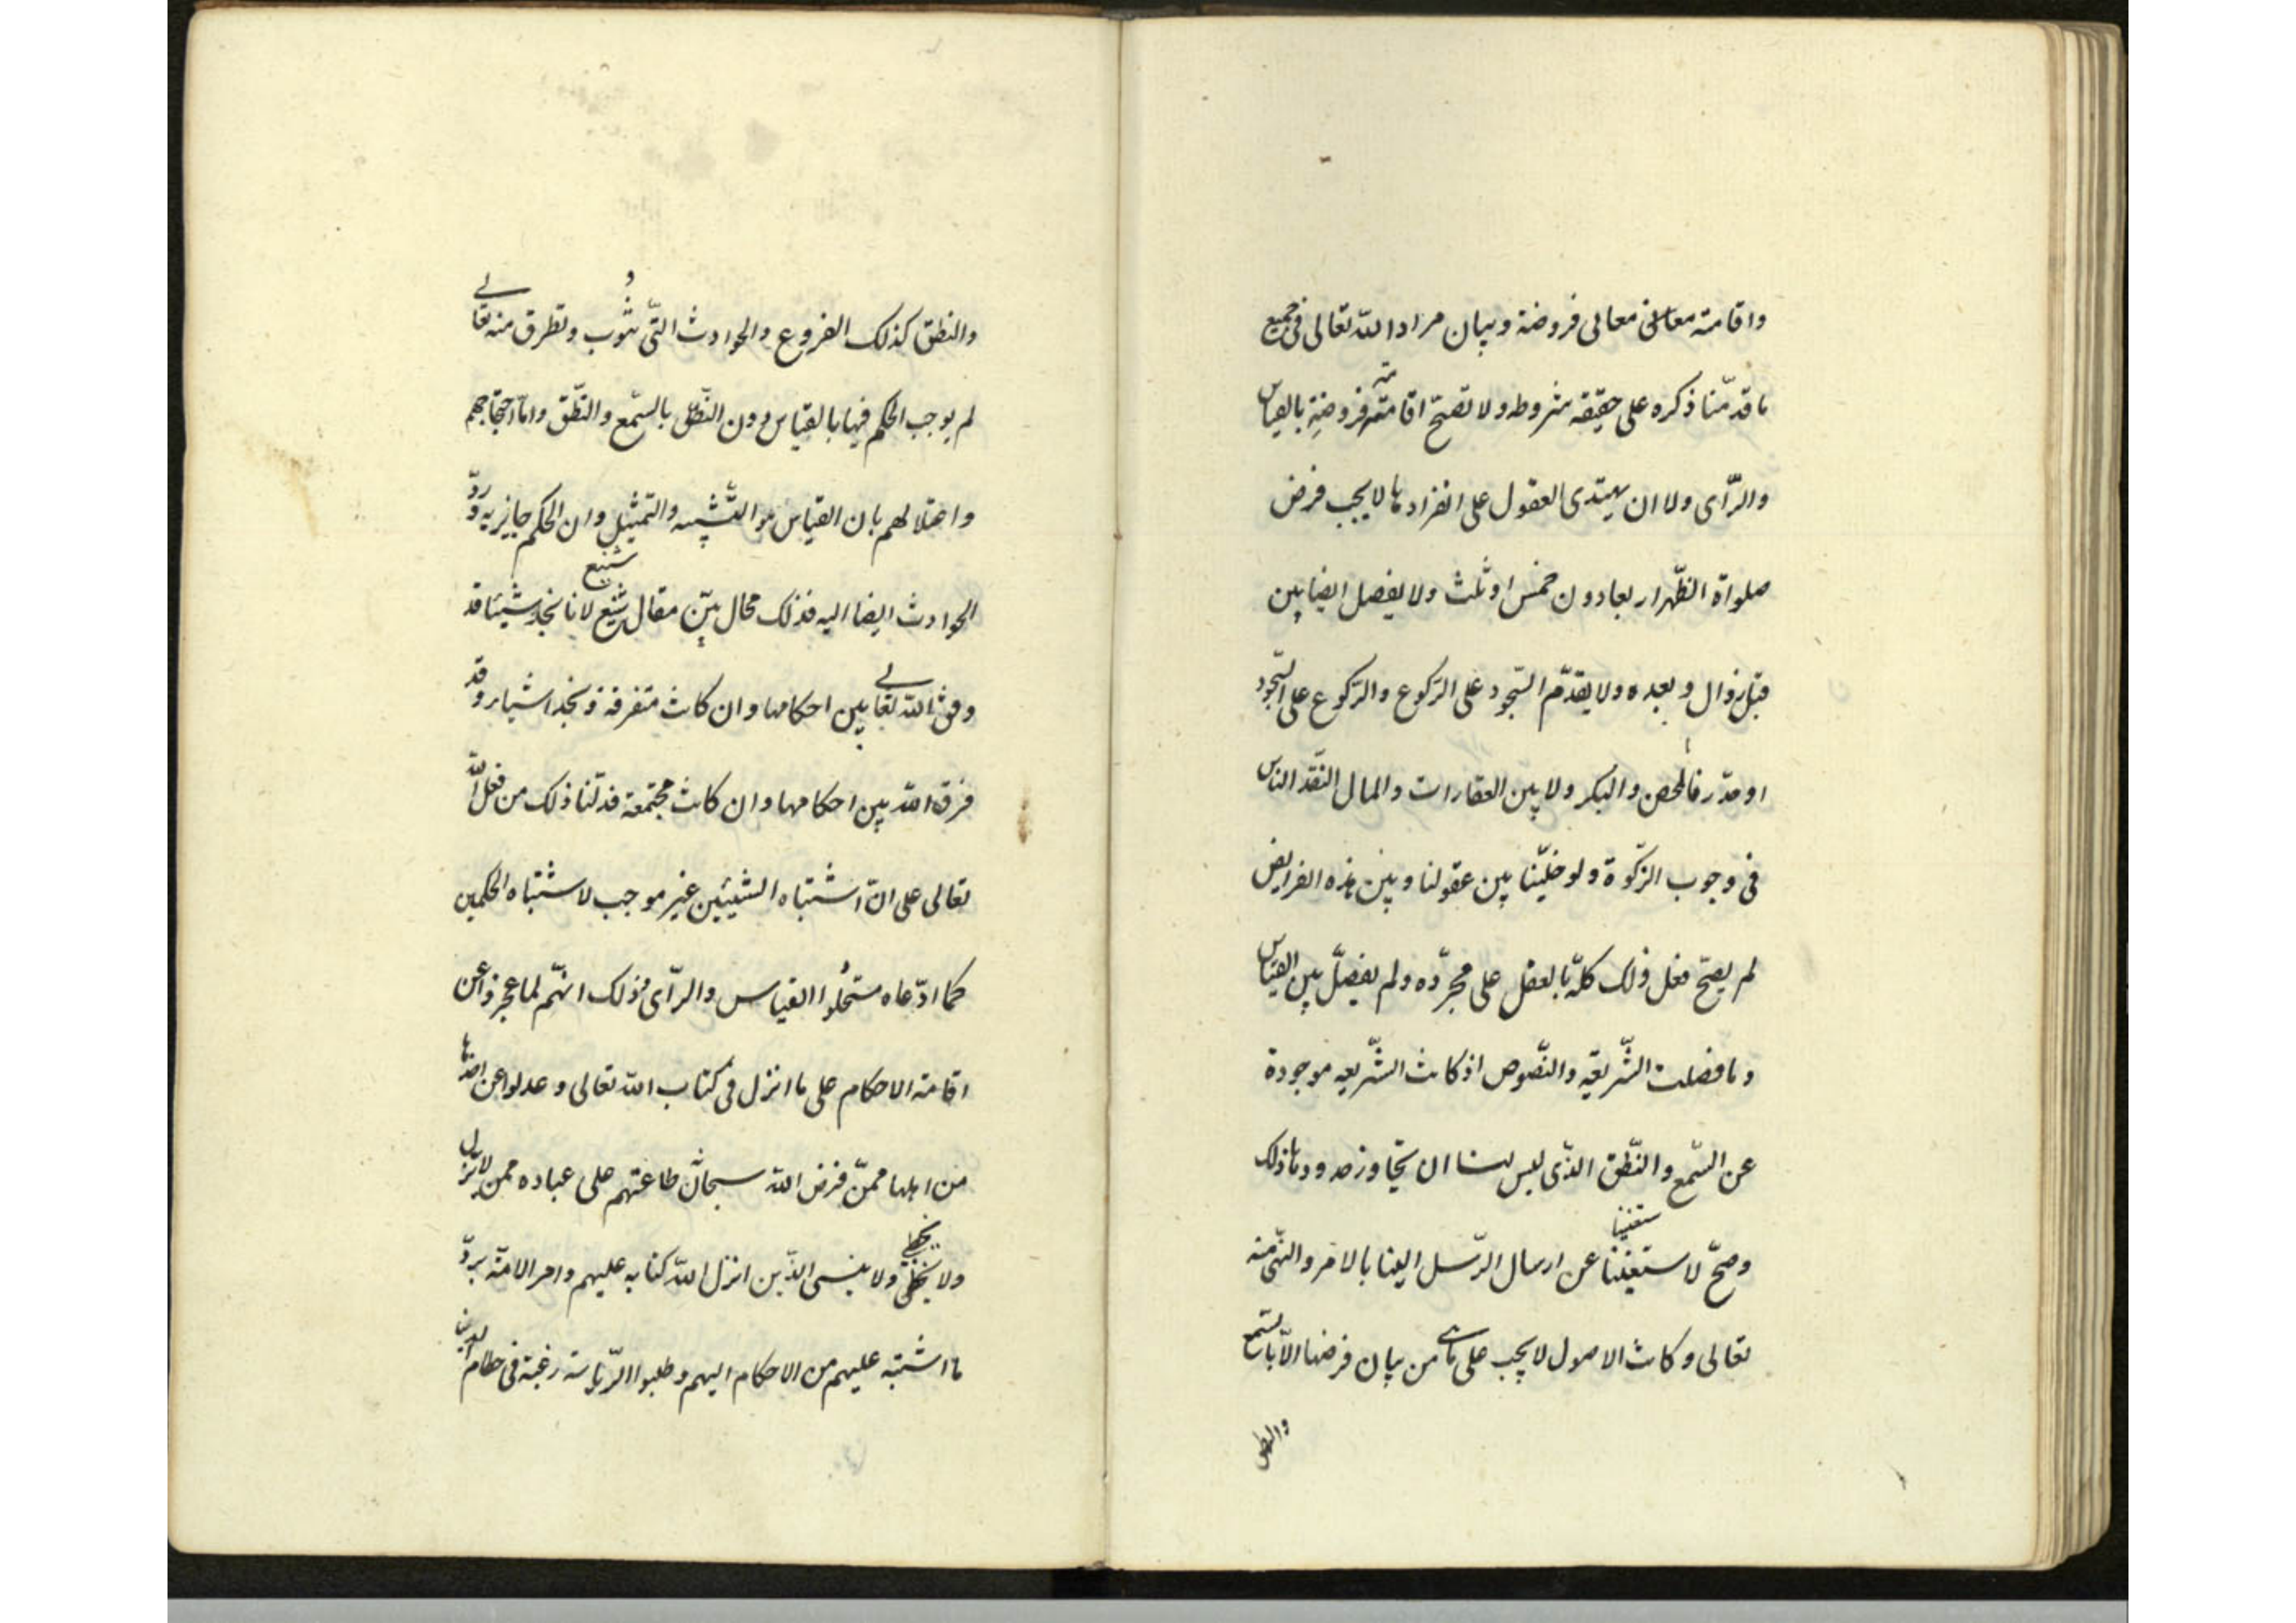 واقامته معانی معالی فروضة وبيان مراد الله تعالى فی جميع
ما قدمّنا ذكره على حقيقه شروطه ولا تصحّ اقامته فروضه بالقياس
والرّاى ولا ان يهتدى العقول على انفرادها لا يجب فرض
صلواة الظّهر اربعا دون خمس او ثلث ولا يفصل ايضا بين
قبل زوال وبعده ولا يقدّم السّجود على الركوع والركوع على السّجود
او حدّ زنا المحصن والبكر ولا بين العقارات والمال النّقد الناس
فى وجوب الزكوة ولو خلّينا بين عقولنا وبين هذه الفرايض
لم يصحّ فعل ذلك كلّه بالعقل على مجرّده ولم يفصل بين القياس
وما فصلت الشّريعة والنّصوص اذ كانت الشّريعه موجودة
عن السّمع والنّطق الذّى ليس لنا ان يتجاوز حدودها ذلك
وصحّ لاستغنينا عن ارسال الرّسل الينا بالامر والنّهى منه
تعالى وكانت الاصول لا يجب على من بيان فرضها الّا بالسّمع
والنطق
والنطق كذلك الفروع والحوادث التّى تنوب وتطرق منه تعالى
لم يوجب الحكم فيها بالقياس دون النّطق بالسّمع والنّطق وامّا احتجاجهم
واعتلالهم بان القياس هو التّشبيه والتمثيل وان الحكم جايز به وردّ
الحوادث ايضا اليه فذلك محال بيّن مقال شنيع لانا نجد شيئا قد
وفق الله تعالى بين احكامها وان كانت متفرقة ونجد اشياء وقد
فرق الله بين احكامها وان كانت مجتمعة فدلّنا ذلك من فعل الله
تعالى على انّ اشتباه الشيئين غير موجب لاشتباه الحكمين
كما ادّعاه مستحلّوا القياس والرّاى وذلك انّهم لما عجزوا عن
اقامة الاحكام على ما انزل فى كتاب الله تعالى وعدلوا عن اخذها
من اهلها ممّن فرض الله سبحانه طاعتهم على عباده ممن لا يزل
ولا يخطى ولا ينسى الذّين انزل الله كتابه عليهم وامر الامّة بردّ
ما اشتبه عليهم من الاحكام اليهم وطلبوا الرّياسة رغبة فى حطام الدنيا